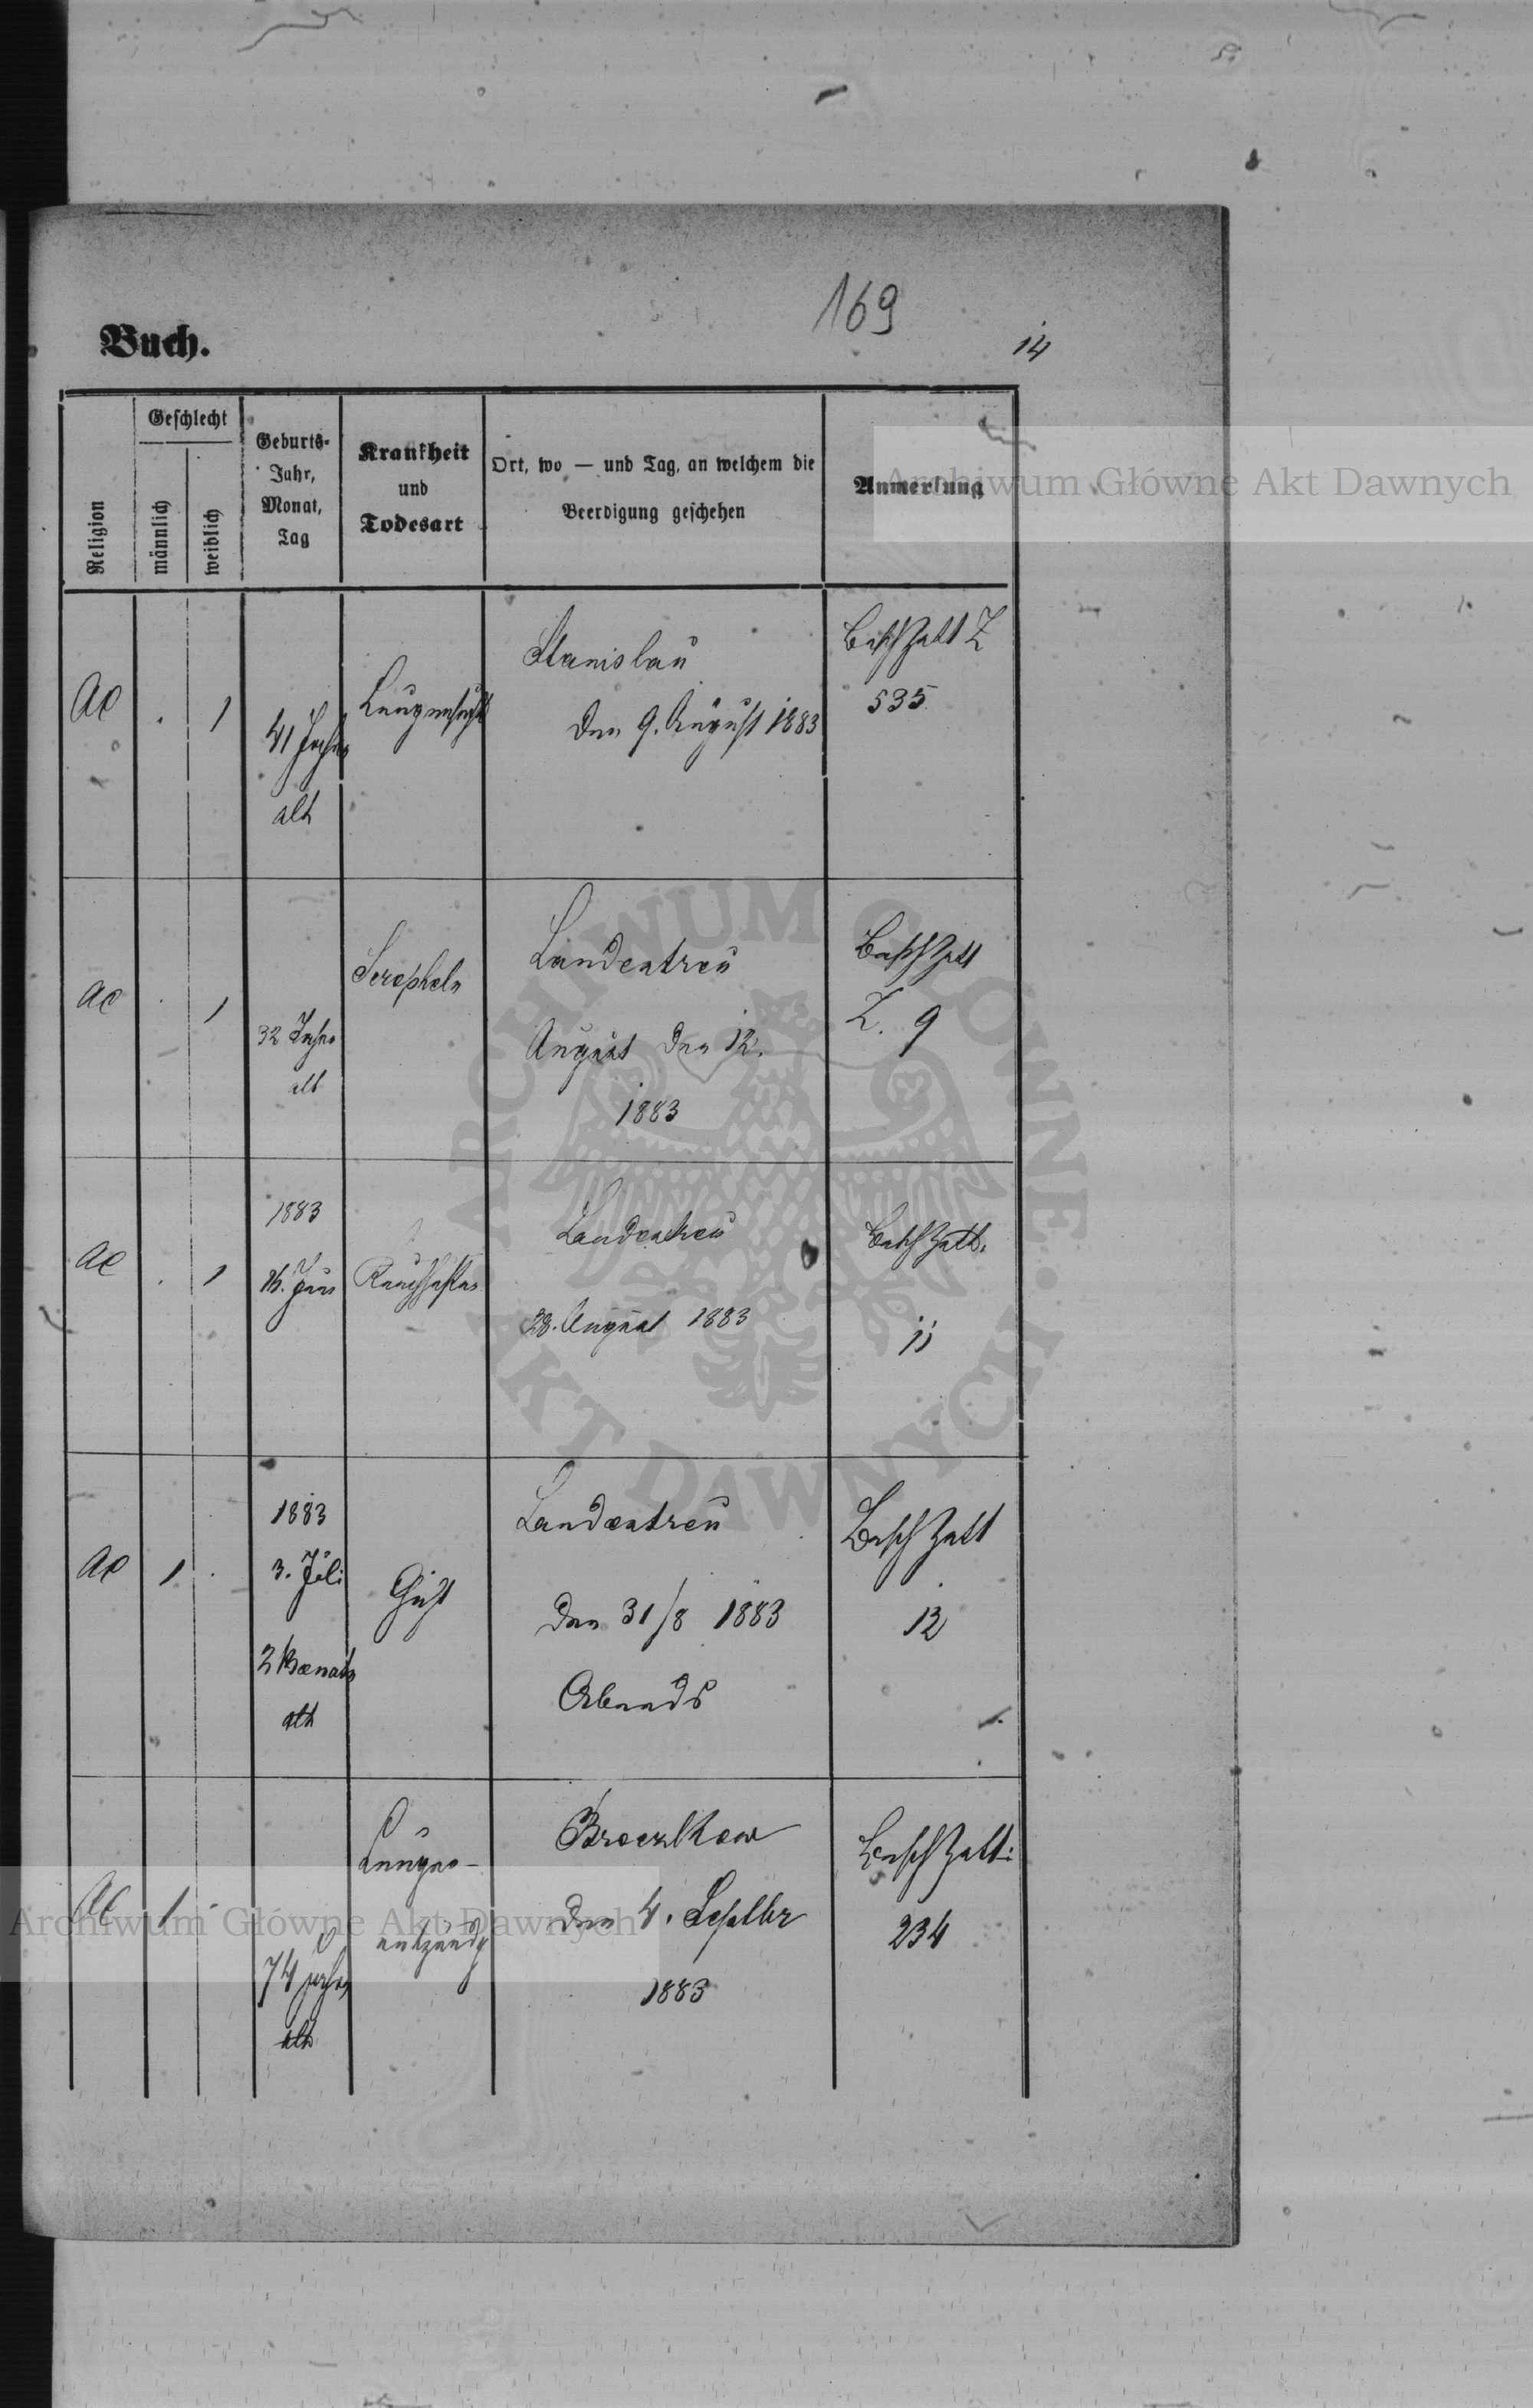 169
14
Buch.
Religion
Geschlecht
männlich
weiblich
Geburts-
Jahr,
Monat,
Tag
Krankheit
und
Todesart
Ort, wo — und Tag, an welchem die
Beerdigung geschehen
Anmerkung
AC . 1
41 Jahre
alt
Lungensucht
Stanislau
den 9. August 1883
BeschZettl Z
535
AC . 1
32 Jahre
alt
Landestreu
August den 12.
1883
BeschZettl
Z. 9
AC . 1
1883
16. Juni
Landestreu
28. August 1883
BeschZettl.
11
AC 1 .
1883
3. Juli
2 Monate
alt
Landestreu
den 31/8 1883
Abends
BeschZettl
12
AC 1 -
74 Jahre
alt
Lungen-
entzündg
den 4. Septbr
1883
BeschZettl:
234
Archiwum Główne Akt Dawnych
Archiwum Główne Akt Dawnych
ARCHIWUM GŁÓWNE • AKT DAWNYCH •